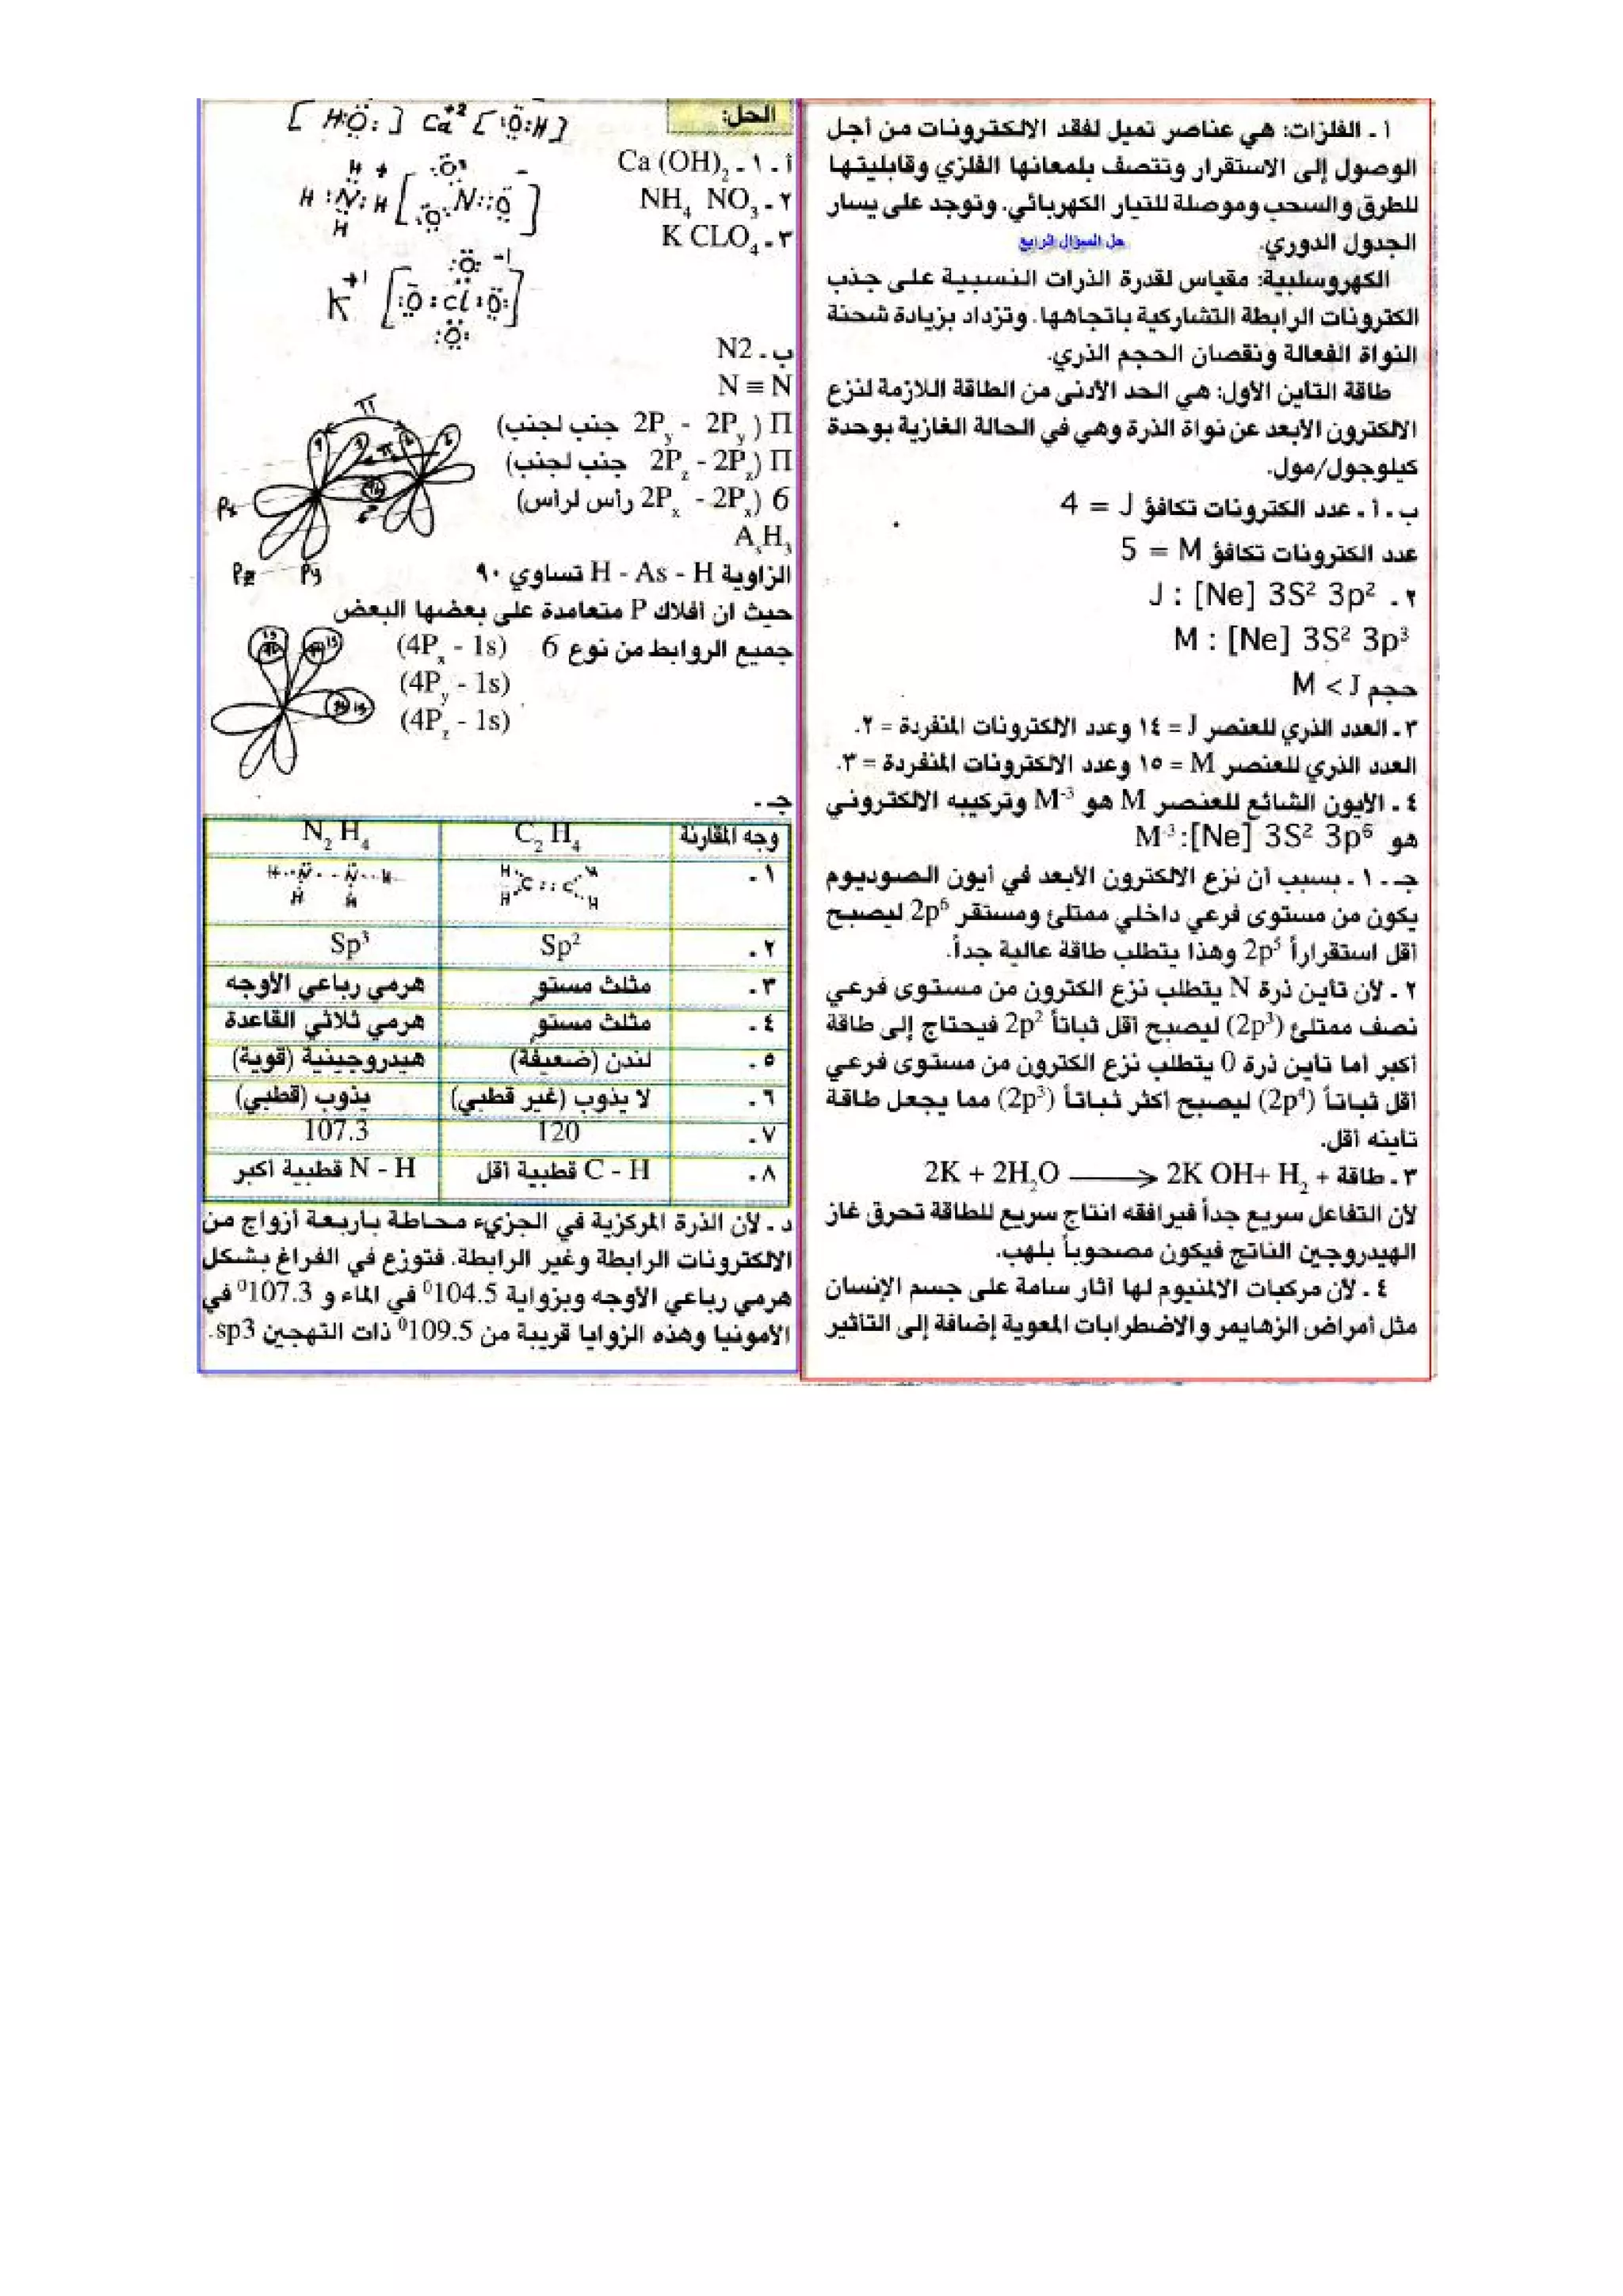 أ - الفلزات: هي عناصر تميل لفقد الالكترونات من أجل
الوصول إلى الاستقرار وتتصف بلمعانها الفلزي وقابليتها
للطرق والسحب وموصلة للتيار الكهربائي. وتوجد على يسار
الجدول الدوري.
حل السؤال الرابع
الكهروسلبية: مقياس لقدرة الذرات النسبية على جذب
الكترونات الرابطة التشاركية باتجاهها. وتزداد بزيادة شحنة
النواة الفعالة ونقصان الحجم الذري.
طاقة التاين الأول: هي الحد الأدنى من الطاقة اللازمة لنزع
الالكترون الأبعد عن نواة الذرة وهي في الحالة الغازية بوحدة
كيلوجول/مول.
ب . أ . عدد الكترونات تكافؤ J = 4
عدد الكترونات تكافؤ M = 5
٢. J : [Ne] 3S² 3p²
M : [Ne] 3S² 3p³
حجم M < J
٣ - العدد الذري للعنصر J = ١٤ وعدد الالكترونات المنفردة = ٢.
العدد الذري للعنصر M = ١٥ وعدد الالكترونات المنفردة = ٣.
٤ - الايون الشائع للعنصر M هو M⁻³ وتركيبه الالكتروني
هو M⁻³:[Ne] 3S² 3p⁶
جـ - ١ . بسبب أن نزع الالكترون الأبعد في أيون الصوديوم
يكون من مستوى فرعي داخلي ممتلئ ومستقر 2p⁶ ليصبح
أقل استقراراً 2p⁵ وهذا يتطلب طاقة عالية جداً.
٢ - لأن تأين ذرة N يتطلب نزع الكترون من مستوى فرعي
نصف ممتلئ (2p³) ليصبح أقل ثباتاً 2p² فيحتاج إلى طاقة
أكبر أما تأين ذرة O يتطلب نزع الكترون من مستوى فرعي
أقل ثباتاً (2p⁴) ليصبح أكثر ثباتاً (2p³) مما يجعل طاقة
تاينه أقل.
٣ - 2K + 2H₂O ⟶ 2K OH+ H₂ + طاقة
لأن التفاعل سريع جداً فيرافقه انتاج سريع للطاقة تحرق غاز
الهيدروجين الناتج فيكون مصحوباً بلهب.
٤ - لأن مركبات الالمنيوم لها آثار سامة على جسم الإنسان
مثل أمراض الزهايمر والاضطرابات المعوية إضافة إلى التأثير
الحل:
[H:Ö:] Ca⁺² [:Ö:H]
أ - ١ - Ca (OH)₂
٢ - NH₄ NO₃
٣ - K CLO₄
K⁺¹ [:Ö:Cl:Ö:]⁻¹
ب - N2
N ≡ N
Π (2Pᵧ - 2Pᵧ جنب لجنب)
Π (2P_z - 2P_z جنب لجنب)
6 (2Pₓ - 2Pₓ رأس لرأس)
Pz Py
AₛH₃
الزاوية H - As - H تساوي ٩٠
حيث ان أفلاك P متعامدة على بعضها البعض
جميع الروابط من نوع 6 (4Pₓ - 1s)
(4Pᵧ - 1s)
(4P_z - 1s)
جـ -
وجه المقارنة C₂ H₄ N₂ H₄
١ -
٢ . Sp² Sp³
٣ . مثلث مستو هرمي رباعي الأوجه
٤ . مثلث مستو هرمي ثلاثي القاعدة
٥ . لندن (ضعيفة) هيدروجينية (قوية)
٦ . لا يذوب (غير قطبي) يذوب (قطبي)
٧ . 120 107.3
٨ . C - H قطبية أقل N - H قطبية أكبر
د - لأن الذرة المركزية في الجزيء محاطة بأربعة أزواج من
الالكترونات الرابطة وغير الرابطة. فتوزع في الفراغ بشكل
هرمي رباعي الأوجه وبزواية 104.5⁰ في الماء و 107.3⁰ في
الأمونيا وهذه الزوايا قريبة من 109.5⁰ ذات التهجين sp3.